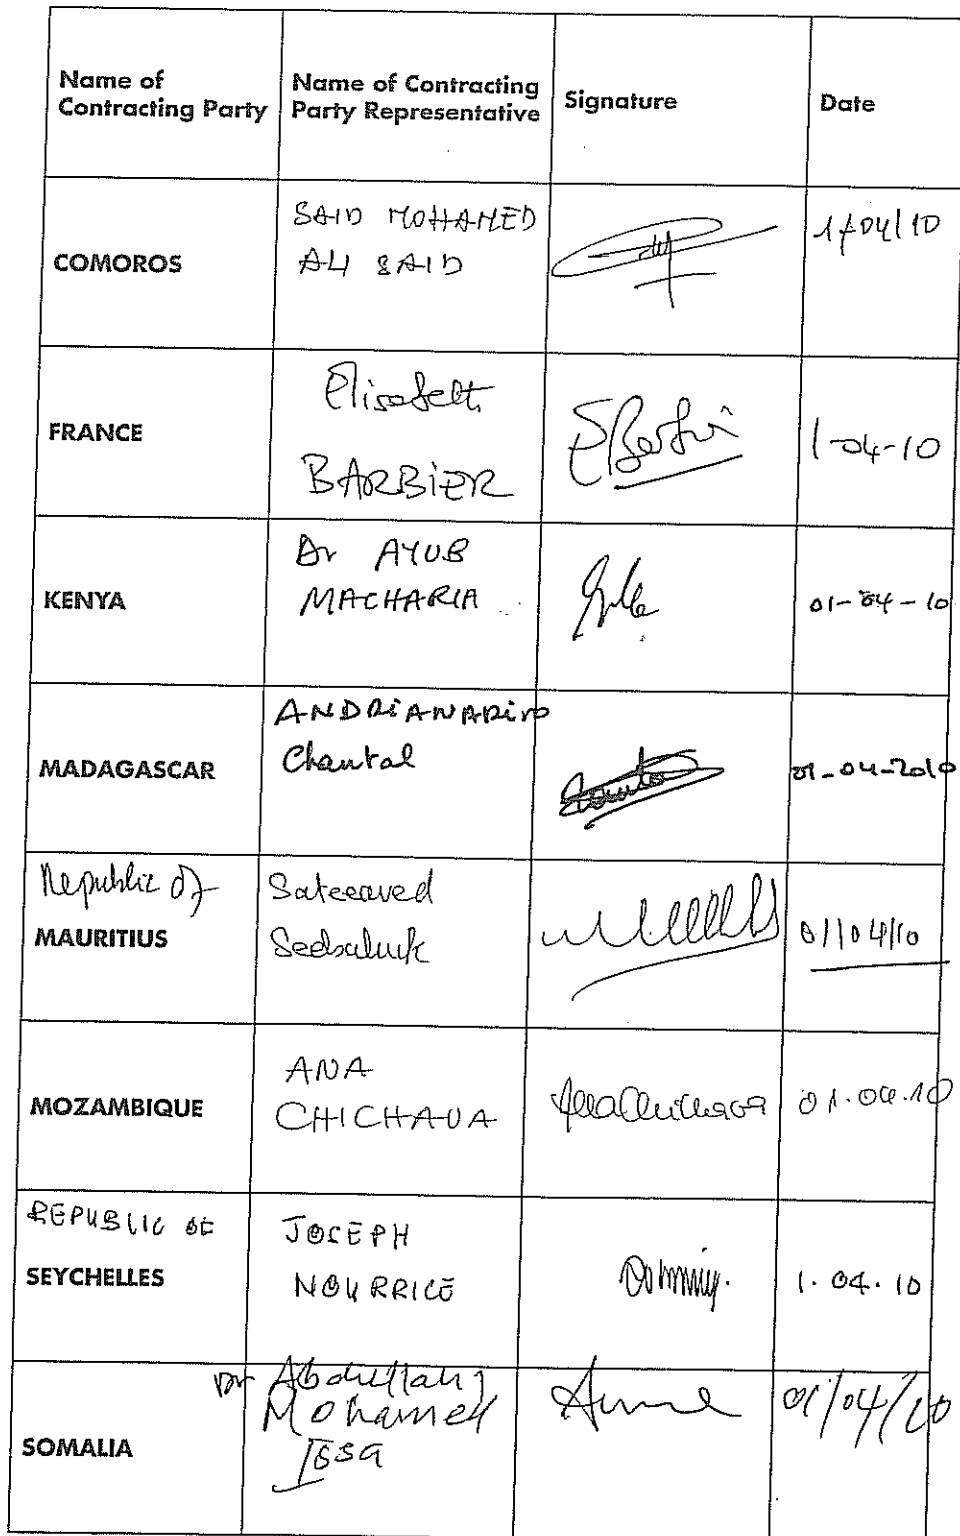 Name of
Contracting Party
Name of Contracting
Party Representative
Signature
Date
COMOROS
SAID MOHAMED
ALI SAID
1/04/10
FRANCE
Elisabeth
BARBIER
EBarbier
1-04-10
KENYA
Dr AYUB
MACHARIA
01-04-10
MADAGASCAR
ANDRIANARIVO
Chantal
01-04-2010
Republic of
MAURITIUS
Sateeaved
Seebaluck
01/04/10
MOZAMBIQUE
ANA
CHICHAVA
AnaChichava
01.04.10
REPUBLIC OF
SEYCHELLES
JOSEPH
NOURRICE
1.04.10
SOMALIA
Dr Abdullahi
Mohamed
Issa
01/04/10